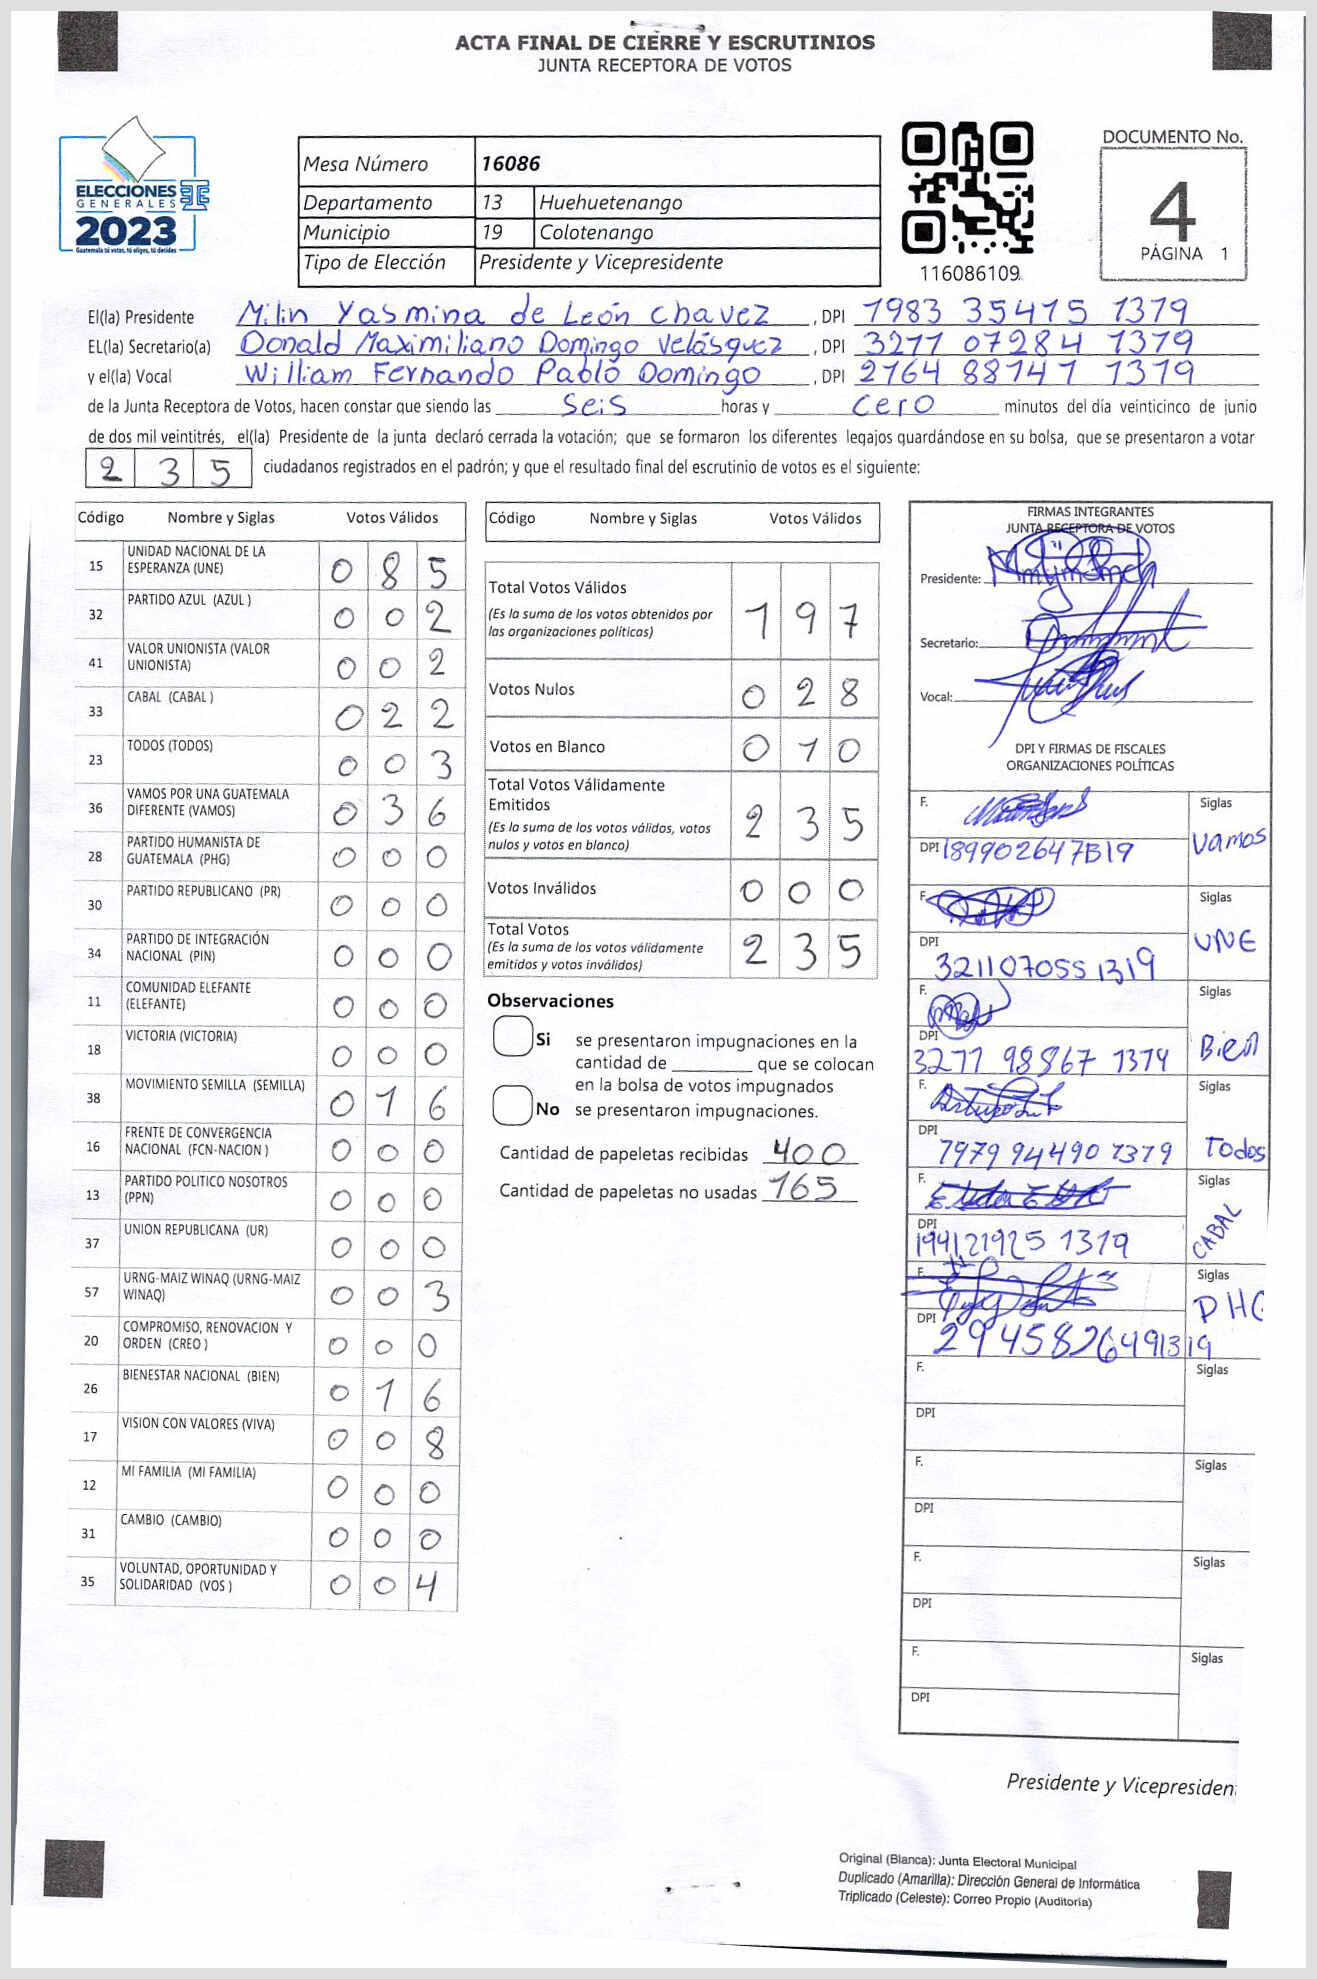 ACTA FINAL DE CIERRE Y ESCRUTINIOS
JUNTA RECEPTORA DE VOTOS
ELECCIONES
GENERALES
2023
Guatemala tú votas, tú eliges, tú decides
Mesa Número 16086
Departamento 13 Huehuetenango
Municipio 19 Colotenango
Tipo de Elección Presidente y Vicepresidente
116086109
DOCUMENTO No.
4
PÁGINA 1
El(la) Presidente Milin Yasmina de León Chavez, DPI 1983 35415 1319
EL(la) Secretario(a) Donald Maximiliano Domingo Velásquez, DPI 3211 07284 1319
y el(la) Vocal William Fernando Pablo Domingo, DPI 2164 88141 1319
de la Junta Receptora de Votos, hacen constar que siendo las seis horas y cero minutos del día veinticinco de junio
de dos mil veintitrés, el(la) Presidente de la junta declaró cerrada la votación; que se formaron los diferentes legajos guardándose en su bolsa, que se presentaron a votar
2 3 5 ciudadanos registrados en el padrón; y que el resultado final del escrutinio de votos es el siguiente:
Código Nombre y Siglas Votos Válidos
15 UNIDAD NACIONAL DE LA ESPERANZA (UNE) 0 8 5
32 PARTIDO AZUL (AZUL ) 0 0 2
41 VALOR UNIONISTA (VALOR UNIONISTA) 0 0 2
33 CABAL (CABAL ) 0 2 2
23 TODOS (TODOS) 0 0 3
36 VAMOS POR UNA GUATEMALA DIFERENTE (VAMOS) 0 3 6
28 PARTIDO HUMANISTA DE GUATEMALA (PHG) 0 0 0
30 PARTIDO REPUBLICANO (PR) 0 0 0
34 PARTIDO DE INTEGRACIÓN NACIONAL (PIN) 0 0 0
11 COMUNIDAD ELEFANTE (ELEFANTE) 0 0 0
18 VICTORIA (VICTORIA) 0 0 0
38 MOVIMIENTO SEMILLA (SEMILLA) 0 1 6
16 FRENTE DE CONVERGENCIA NACIONAL (FCN-NACION ) 0 0 0
13 PARTIDO POLITICO NOSOTROS (PPN) 0 0 0
37 UNION REPUBLICANA (UR) 0 0 0
57 URNG-MAIZ WINAQ (URNG-MAIZ WINAQ) 0 0 3
20 COMPROMISO, RENOVACION Y ORDEN (CREO ) 0 0 0
26 BIENESTAR NACIONAL (BIEN) 0 1 6
17 VISION CON VALORES (VIVA) 0 0 8
12 MI FAMILIA (MI FAMILIA) 0 0 0
31 CAMBIO (CAMBIO) 0 0 0
35 VOLUNTAD, OPORTUNIDAD Y SOLIDARIDAD (VOS ) 0 0 4
Código Nombre y Siglas Votos Válidos
Total Votos Válidos 1 9 7
(Es la suma de los votos obtenidos por
las organizaciones políticas)
Votos Nulos 0 2 8
Votos en Blanco 0 1 0
Total Votos Válidamente
Emitidos 2 3 5
(Es la suma de los votos válidos, votos
nulos y votos en blanco)
Votos Inválidos 0 0 0
Total Votos 2 3 5
(Es la suma de los votos válidamente
emitidos y votos inválidos)
Observaciones
Si se presentaron impugnaciones en la
cantidad de ________ que se colocan
en la bolsa de votos impugnados
No se presentaron impugnaciones.
Cantidad de papeletas recibidas 400
Cantidad de papeletas no usadas 165
FIRMAS INTEGRANTES
JUNTA RECEPTORA DE VOTOS
Presidente:
Secretario:
Vocal:
DPI Y FIRMAS DE FISCALES
ORGANIZACIONES POLÍTICAS
F. Siglas
DPI Vamos
F. Siglas
DPI 321107055 1319 UNE
F. Siglas
DPI 3211 98867 1319 Bien
F. Siglas
DPI 1979 94490 1319 Todos
F. Siglas
DPI 194121925 1319 CABAL
F. Siglas
DPI 2945826491319 PHG
F. Siglas
DPI
F. Siglas
DPI
F. Siglas
DPI
F. Siglas
DPI
Presidente y Vicepresiden
Original (Blanca): Junta Electoral Municipal
Duplicado (Amarilla): Dirección General de Informática
Triplicado (Celeste): Correo Propio (Auditoría)